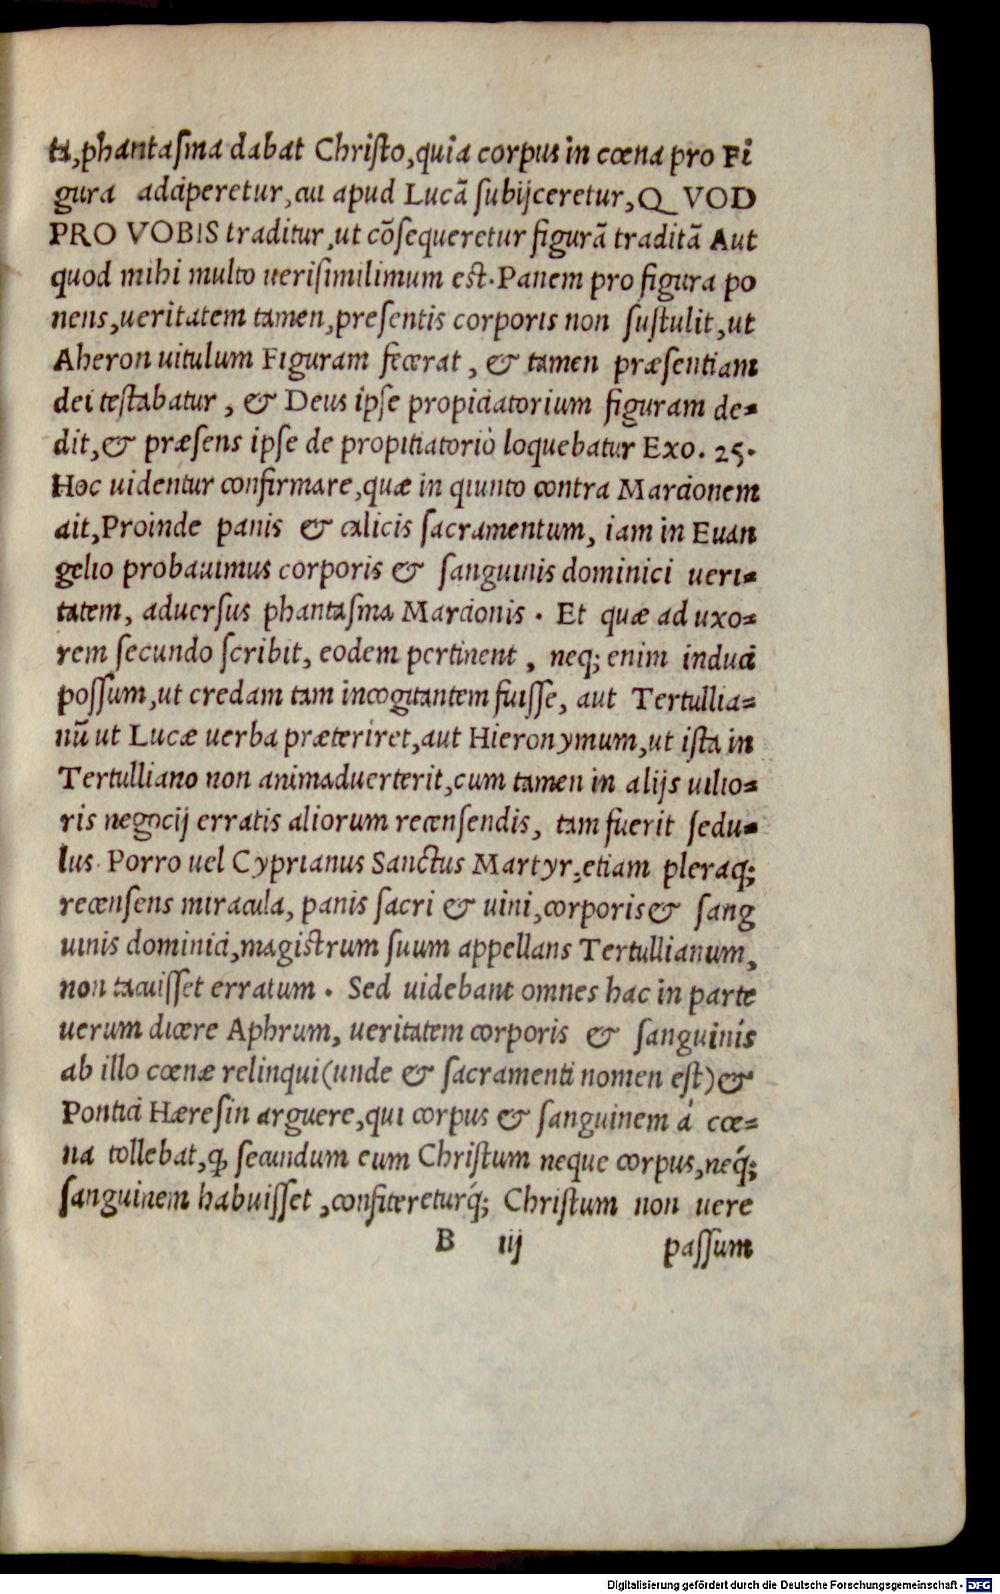 ta,phantaſma dabat Chriſto,quia corpus in cœna pro Fi
gura acciperetur,cui apud Lucã ſubijceretur,QVOD
PRO VOBIS traditur,ut cõſequeretur figurã traditã Aut
quod mihi multo ueriſimilimum eſt.Panem pro figura po
nens,ueritatem tamen,preſentis corporis non ſuſtulit,ut
Aheron uitulum Figuram fecerat, & tamen præſentiam
dei teſtabatur, & Deus ipſe propiciatorium figuram de-
dit,& præſens ipſe de propitiatorio loquebatur Exo. 25.
Hoc uidentur confirmare,quæ in quinto contra Marcionem
ait,Proinde panis & calicis ſacramentum, iam in Euan
gelio probauimus corporis & ſanguinis dominici ueri-
tatem, aduerſus phantaſma Marcionis. Et quæ ad uxo-
rem ſecundo ſcribit, eodem pertinent, neq; enim induci
poſſum,ut credam tam incogitantem fuiſſe, aut Tertullia-
nũ ut Lucæ uerba præteriret,aut Hieronymum,ut iſta in
Tertulliano non animaduerterit,cum tamen in alijs uilio-
ris negocij erratis aliorum recenſendis, tam fuerit ſedu-
lus. Porro uel Cyprianus Sanctus Martyr,etiam pleraq;
recenſens miracula, panis ſacri & uini,corporis & ſang
uinis dominici,magiſtrum ſuum appellans Tertullianum,
non tacuiſſet erratum. Sed uidebant omnes hac in parte
uerum dicere Aphrum, ueritatem corporis & ſanguinis
ab illo cœnæ relinqui(unde & ſacramenti nomen eſt)&
Pontici Hæreſin arguere,qui corpus & ſanguinem á cœ-
na tollebat,ꝙ ſecundum eum Chriſtum neque corpus,neq́;
ſanguinem habuiſſet,confiteretурq́; Chriſtum non uere
B iij passum
Digitalisierung gefördert durch die Deutsche Forschungsgemeinschaft - DFG